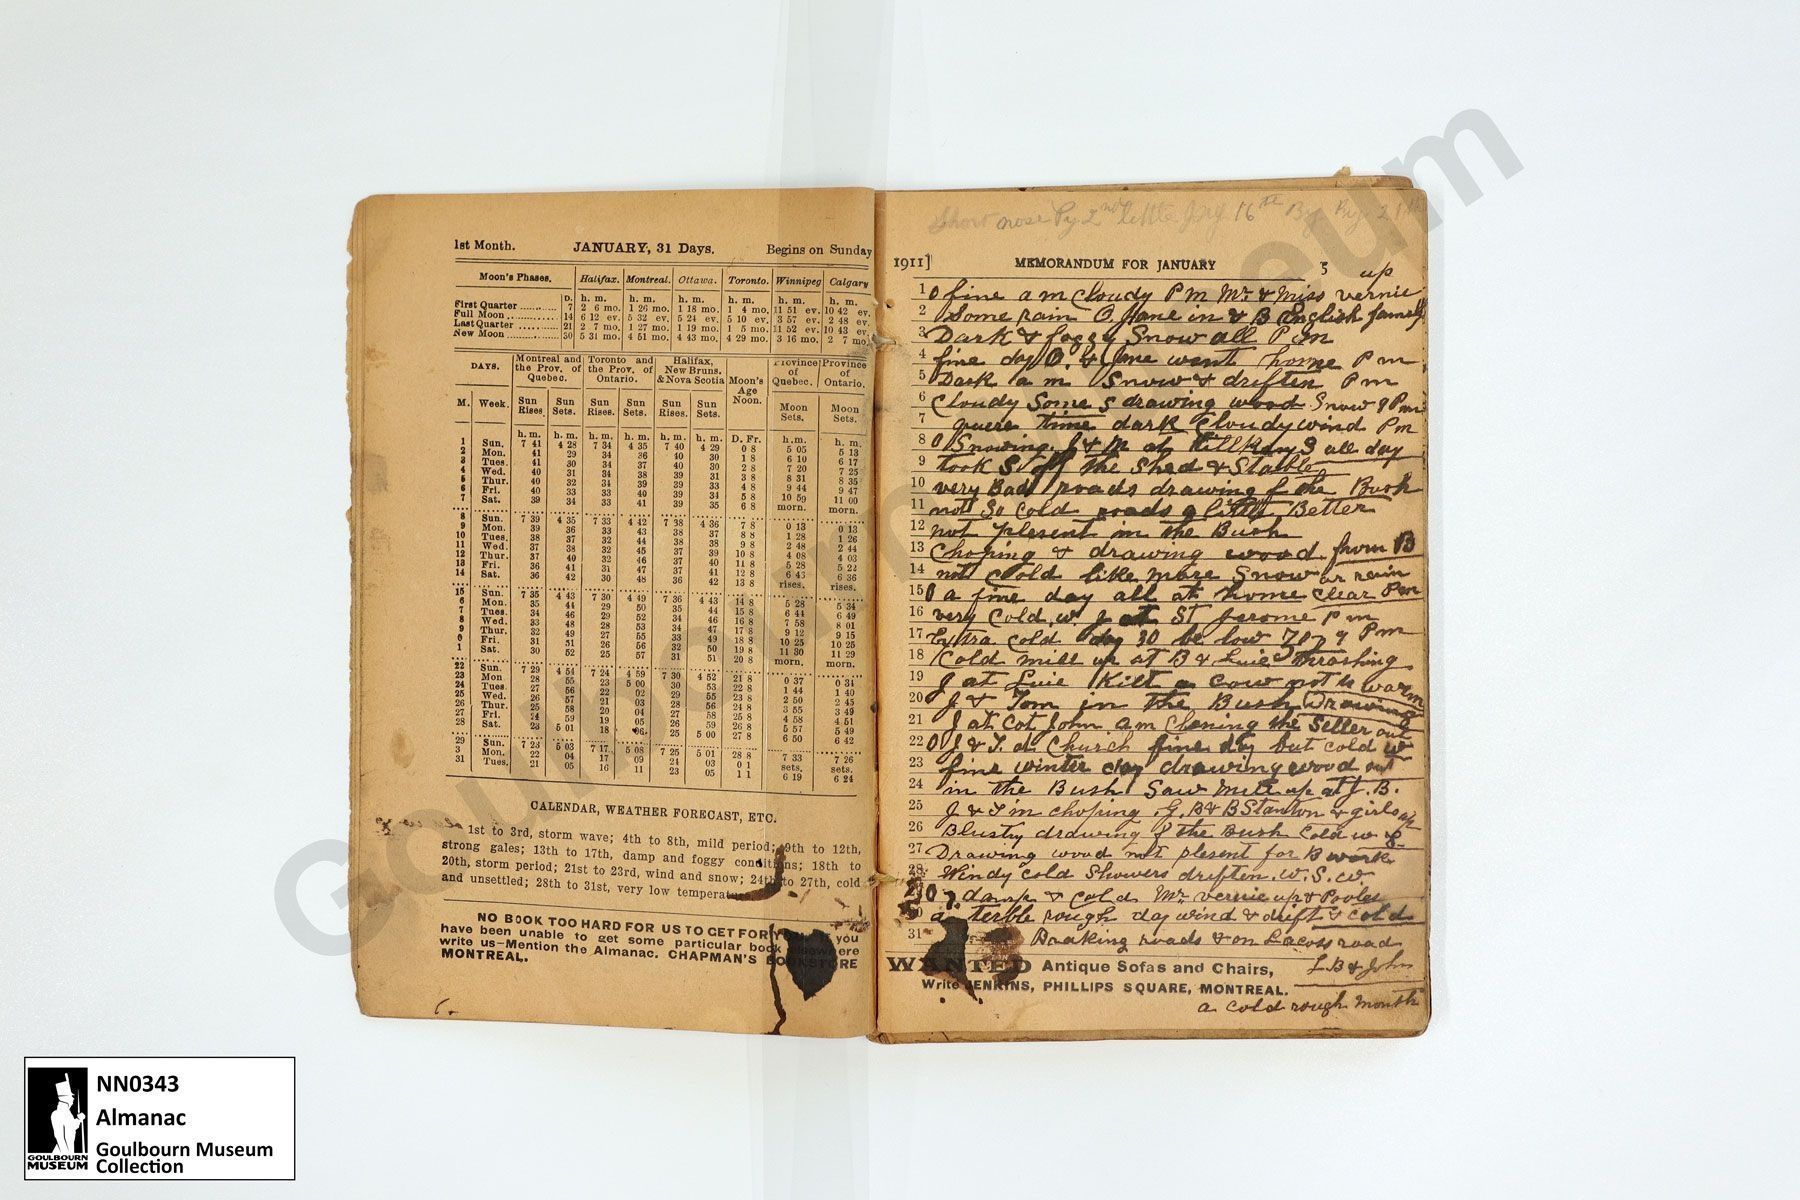 1st Month. JANUARY, 31 Days. Begins on Sunday
Moon's Phases. Halifax. Montreal. Ottawa. Toronto. Winnipeg Calgary
D. h. m. h. m. h. m. h. m. h. m. h. m.
First Quarter 7 2 6 mo. 1 26 mo. 1 18 mo. 1 4 mo. 11 51 ev. 10 42 ev.
Full Moon 14 6 12 ev. 5 32 ev. 5 24 ev. 5 10 ev. 3 57 ev. 2 48 ev.
Last Quarter 21 2 7 mo. 1 27 mo. 1 19 mo. 1 5 mo. 11 52 ev. 10 43 ev.
New Moon 30 5 31 mo. 4 51 mo. 4 43 mo. 4 29 mo. 3 16 mo. 2 7 mo.
DAYS. Montreal and the Prov. of Quebec. Toronto and the Prov. of Ontario. Halifax, New Bruns. & Nova Scotia Moon's Age Noon. Province of Quebec. Province of Ontario.
M. Week. Sun Rises Sun Sets. Sun Rises. Sun Sets. Sun Rises. Sun Sets. Moon Sets. Moon Sets.
h. m. h. m. h. m. h. m. h. m. h. m. D. Fr. h. m. h. m.
1 Sun. 7 41 4 28 7 34 4 35 7 40 4 29 0 8 5 05 5 13
2 Mon. 41 29 34 36 40 30 1 8 6 10 6 17
3 Tues. 41 30 34 37 40 30 2 8 7 20 7 25
4 Wed. 40 31 34 38 39 31 3 8 8 31 8 35
5 Thur. 40 32 34 39 39 33 4 8 9 44 9 47
6 Fri. 40 33 33 40 39 34 5 8 10 59 11 00
7 Sat. 39 34 33 41 39 35 6 8 morn. morn.
8 Sun. 7 39 4 35 7 33 4 42 7 38 4 36 7 8 0 13 0 13
9 Mon. 39 36 33 43 38 37 8 8 1 28 1 26
10 Tues. 38 37 32 44 38 38 9 8 2 48 2 44
11 Wed. 37 38 32 45 37 39 10 8 4 08 4 03
12 Thur. 37 40 32 46 37 40 11 8 5 28 5 22
13 Fri. 36 41 31 47 37 41 12 8 6 43 6 36
14 Sat. 36 42 30 48 36 42 13 8 rises. rises.
15 Sun. 7 35 4 43 7 30 4 49 7 36 4 43 14 8 5 28 5 34
6 Mon. 35 44 29 50 35 44 15 8 6 44 6 49
7 Tues. 34 46 29 52 34 46 16 8 7 58 8 01
8 Wed. 33 48 28 53 34 47 17 8 9 12 9 15
9 Thur. 32 49 27 55 33 49 18 8 10 25 10 25
0 Fri. 31 51 26 56 32 50 19 8 11 30 11 29
1 Sat. 30 52 25 57 31 51 20 8 morn. morn.
22 Sun. 7 29 4 54 7 24 4 59 7 30 4 52 21 8 0 37 0 31
23 Mon. 28 55 23 5 00 30 53 22 8 1 44 1 40
24 Tues. 27 56 22 02 29 55 23 8 2 50 2 45
25 Wed. 26 57 21 03 28 56 24 8 3 55 3 49
26 Thur. 25 58 20 04 27 58 25 8 4 58 4 51
27 Fri. 24 59 19 05 26 59 26 8 5 57 5 49
28 Sat. 23 5 01 18 06 25 5 00 27 8 6 50 6 42
29 Sun. 7 23 5 03 7 17 5 08 7 25 5 01 28 8 7 33 7 26
3 Mon. 22 04 17 09 24 03 0 1 sets. sets.
31 Tues. 21 05 16 11 23 05 1 1 6 19 6 24
CALENDAR, WEATHER FORECAST, ETC.
1st to 3rd, storm wave; 4th to 8th, mild period; 9th to 12th,
strong gales; 13th to 17th, damp and foggy conditions; 18th to
20th, storm period; 21st to 23rd, wind and snow; 24th to 27th, cold
and unsettled; 28th to 31st, very low temperatu
NO BOOK TOO HARD FOR US TO GET FOR YOU you
have been unable to get some particular book elsewhere
write us—Mention the Almanac. CHAPMAN'S BOOKSTORE
MONTREAL.
6.
Short nose Py 2nd little 16th 21th
1911] MEMORANDUM FOR JANUARY 5
up
1 0 fine a m Cloudy P m Mr & Miss vernie
2 Some rain O. Jane in & B English family
3 Dark & foggy Snow all P m
4 fine day O. & Jane went home P m
5 Dark a m Snow & driften P m
6 Cloudy Some S drawing wood Snow 9 Pm
7 quere time dark Cloudy wind P m
8 0 Snowing J & M at Kill S all day
9 took S off the Shed & Stable
10 very Bad roads drawing f the Bush
11 not So cold roads a little Better
12 not plesent in the Bush
13 Choping & drawing wood from B
14 not Cold like more Snow or rain
15 0 a fine day all at home clear Pm
16 very Cold w J at St Jerome P m
17 Extra cold day 30 be low P m
18 Cold mill up at B & Luie thrashing
19 J at Luie Kilt a cow not so warm
20 J & Tom in the Bush Drawing
21 J at Cot John a m Clening the Seller out
22 0 J & T. at Church fine day but cold w
23 fine winter day drawing wood out
24 in the Bush Saw Mill up at J. B.
25 J & T in choping. G. B & B Stanton & girls
26 Blustry drawing f the Bush Cold w
27 Drawing wood not plesent for B work
28 Windy cold Showers driften. W. S. w
0 damp & cold Mr vernie up & Pooles
30 a terble rough day wind & drift & cold
31 Braking roads & on Lacoss road
WANTED Antique Sofas and Chairs,
Write JENKINS, PHILLIPS SQUARE, MONTREAL.
L B & John
a cold rough month
Goulbourn Museum
NN0343
Almanac
Goulbourn Museum
Collection
GOULBOURN
MUSEUM